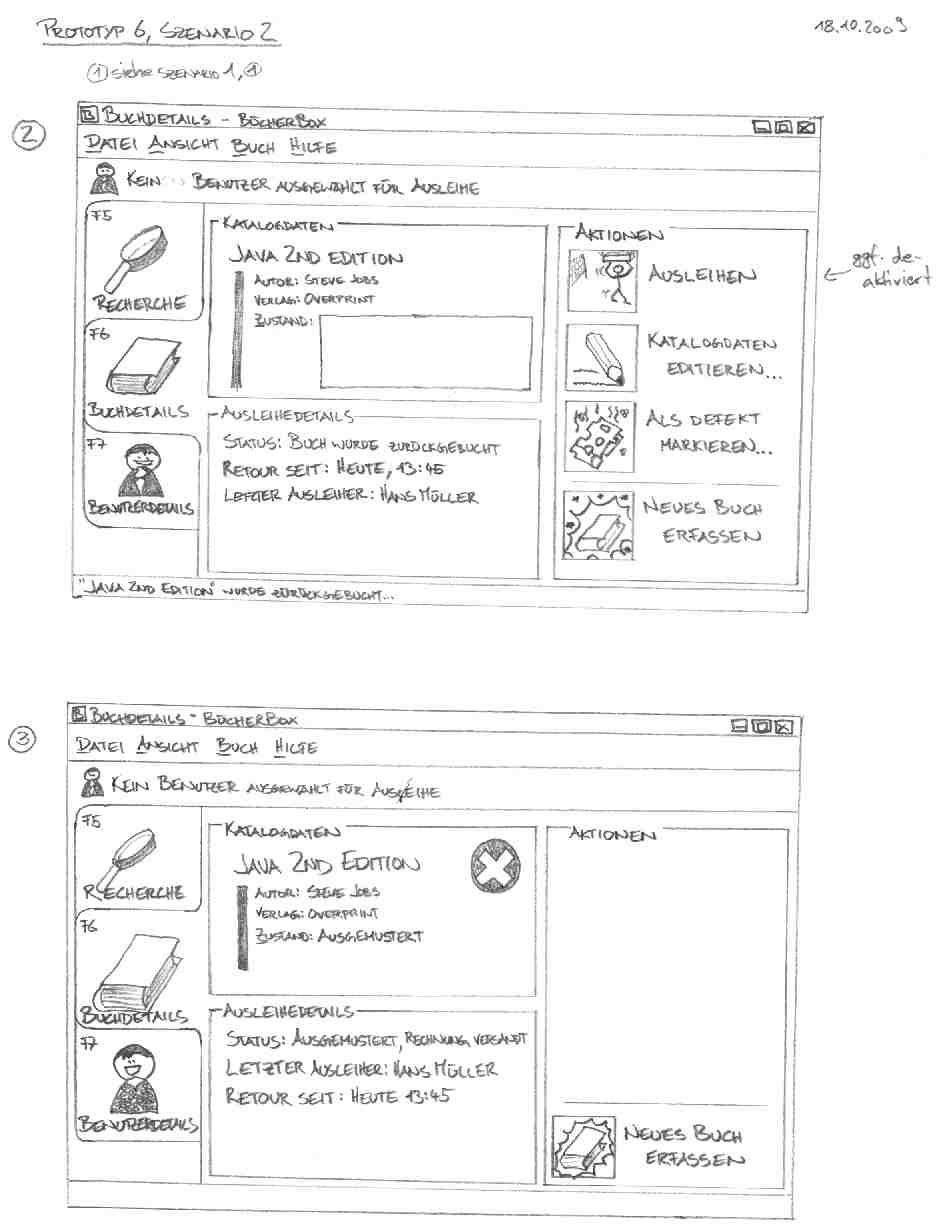 PROTOTYP 6, SZENARIO 2
18.10.2009
① siehe SZENARIO 1, ①
②
B BUCHDETAILS - BÜCHERBOX
DATEI ANSICHT BUCH HILFE
KEIN BENUTZER AUSGEWÄHLT FÜR AUSLEIHE
F5
RECHERCHE
F6
BUCHDETAILS
F7
BENUTZERDETAILS
KATALOGDATEN
JAVA 2ND EDITION
AUTOR: STEVE JOBS
VERLAG: OVERPRINT
ZUSTAND:
AUSLEIHEDETAILS
STATUS: BUCH WURDE ZURÜCKGEBUCHT
RETOUR SEIT: HEUTE, 13:45
LETZTER AUSLEIHER: HANS MÜLLER
AKTIONEN
AUSLEIHEN
KATALOGDATEN
EDITIEREN...
ALS DEFEKT
MARKIEREN...
NEUES BUCH
ERFASSEN
ggf. de-
aktiviert
"JAVA 2ND EDITION" WURDE ZURÜCKGEBUCHT...
③
B BUCHDETAILS - BÜCHERBOX
DATEI ANSICHT BUCH HILFE
KEIN BENUTZER AUSGEWÄHLT FÜR AUSLEIHE
F5
RECHERCHE
F6
BUCHDETAILS
F7
BENUTZERDETAILS
KATALOGDATEN
JAVA 2ND EDITION
AUTOR: STEVE JOBS
VERLAG: OVERPRINT
ZUSTAND: AUSGEMUSTERT
AUSLEIHEDETAILS
STATUS: AUSGEMUSTERT, RECHNUNG VERSANDT
LETZTER AUSLEIHER: HANS MÜLLER
RETOUR SEIT: HEUTE 13:45
AKTIONEN
NEUES BUCH
ERFASSEN